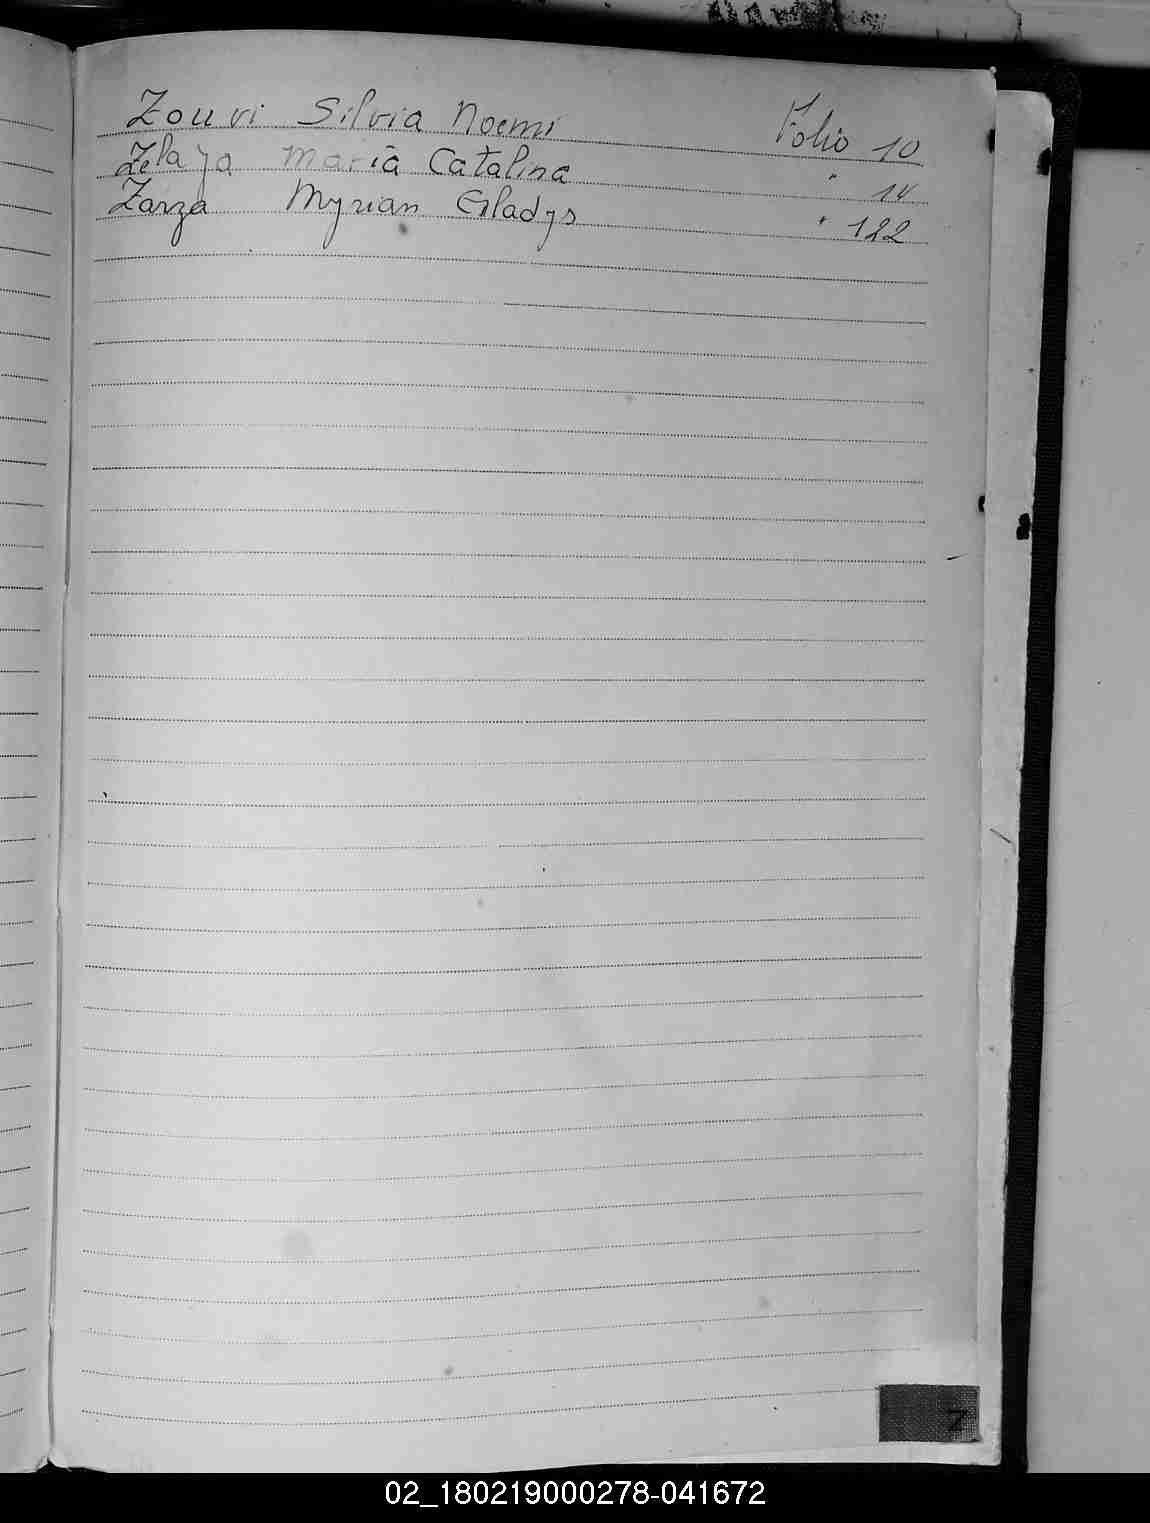 Zouvi Silvia Noemi Folio 10
Zelaya Maria Catalina " 14
Zarza Myrian Gladys " 122
Z
02_180219000278-041672